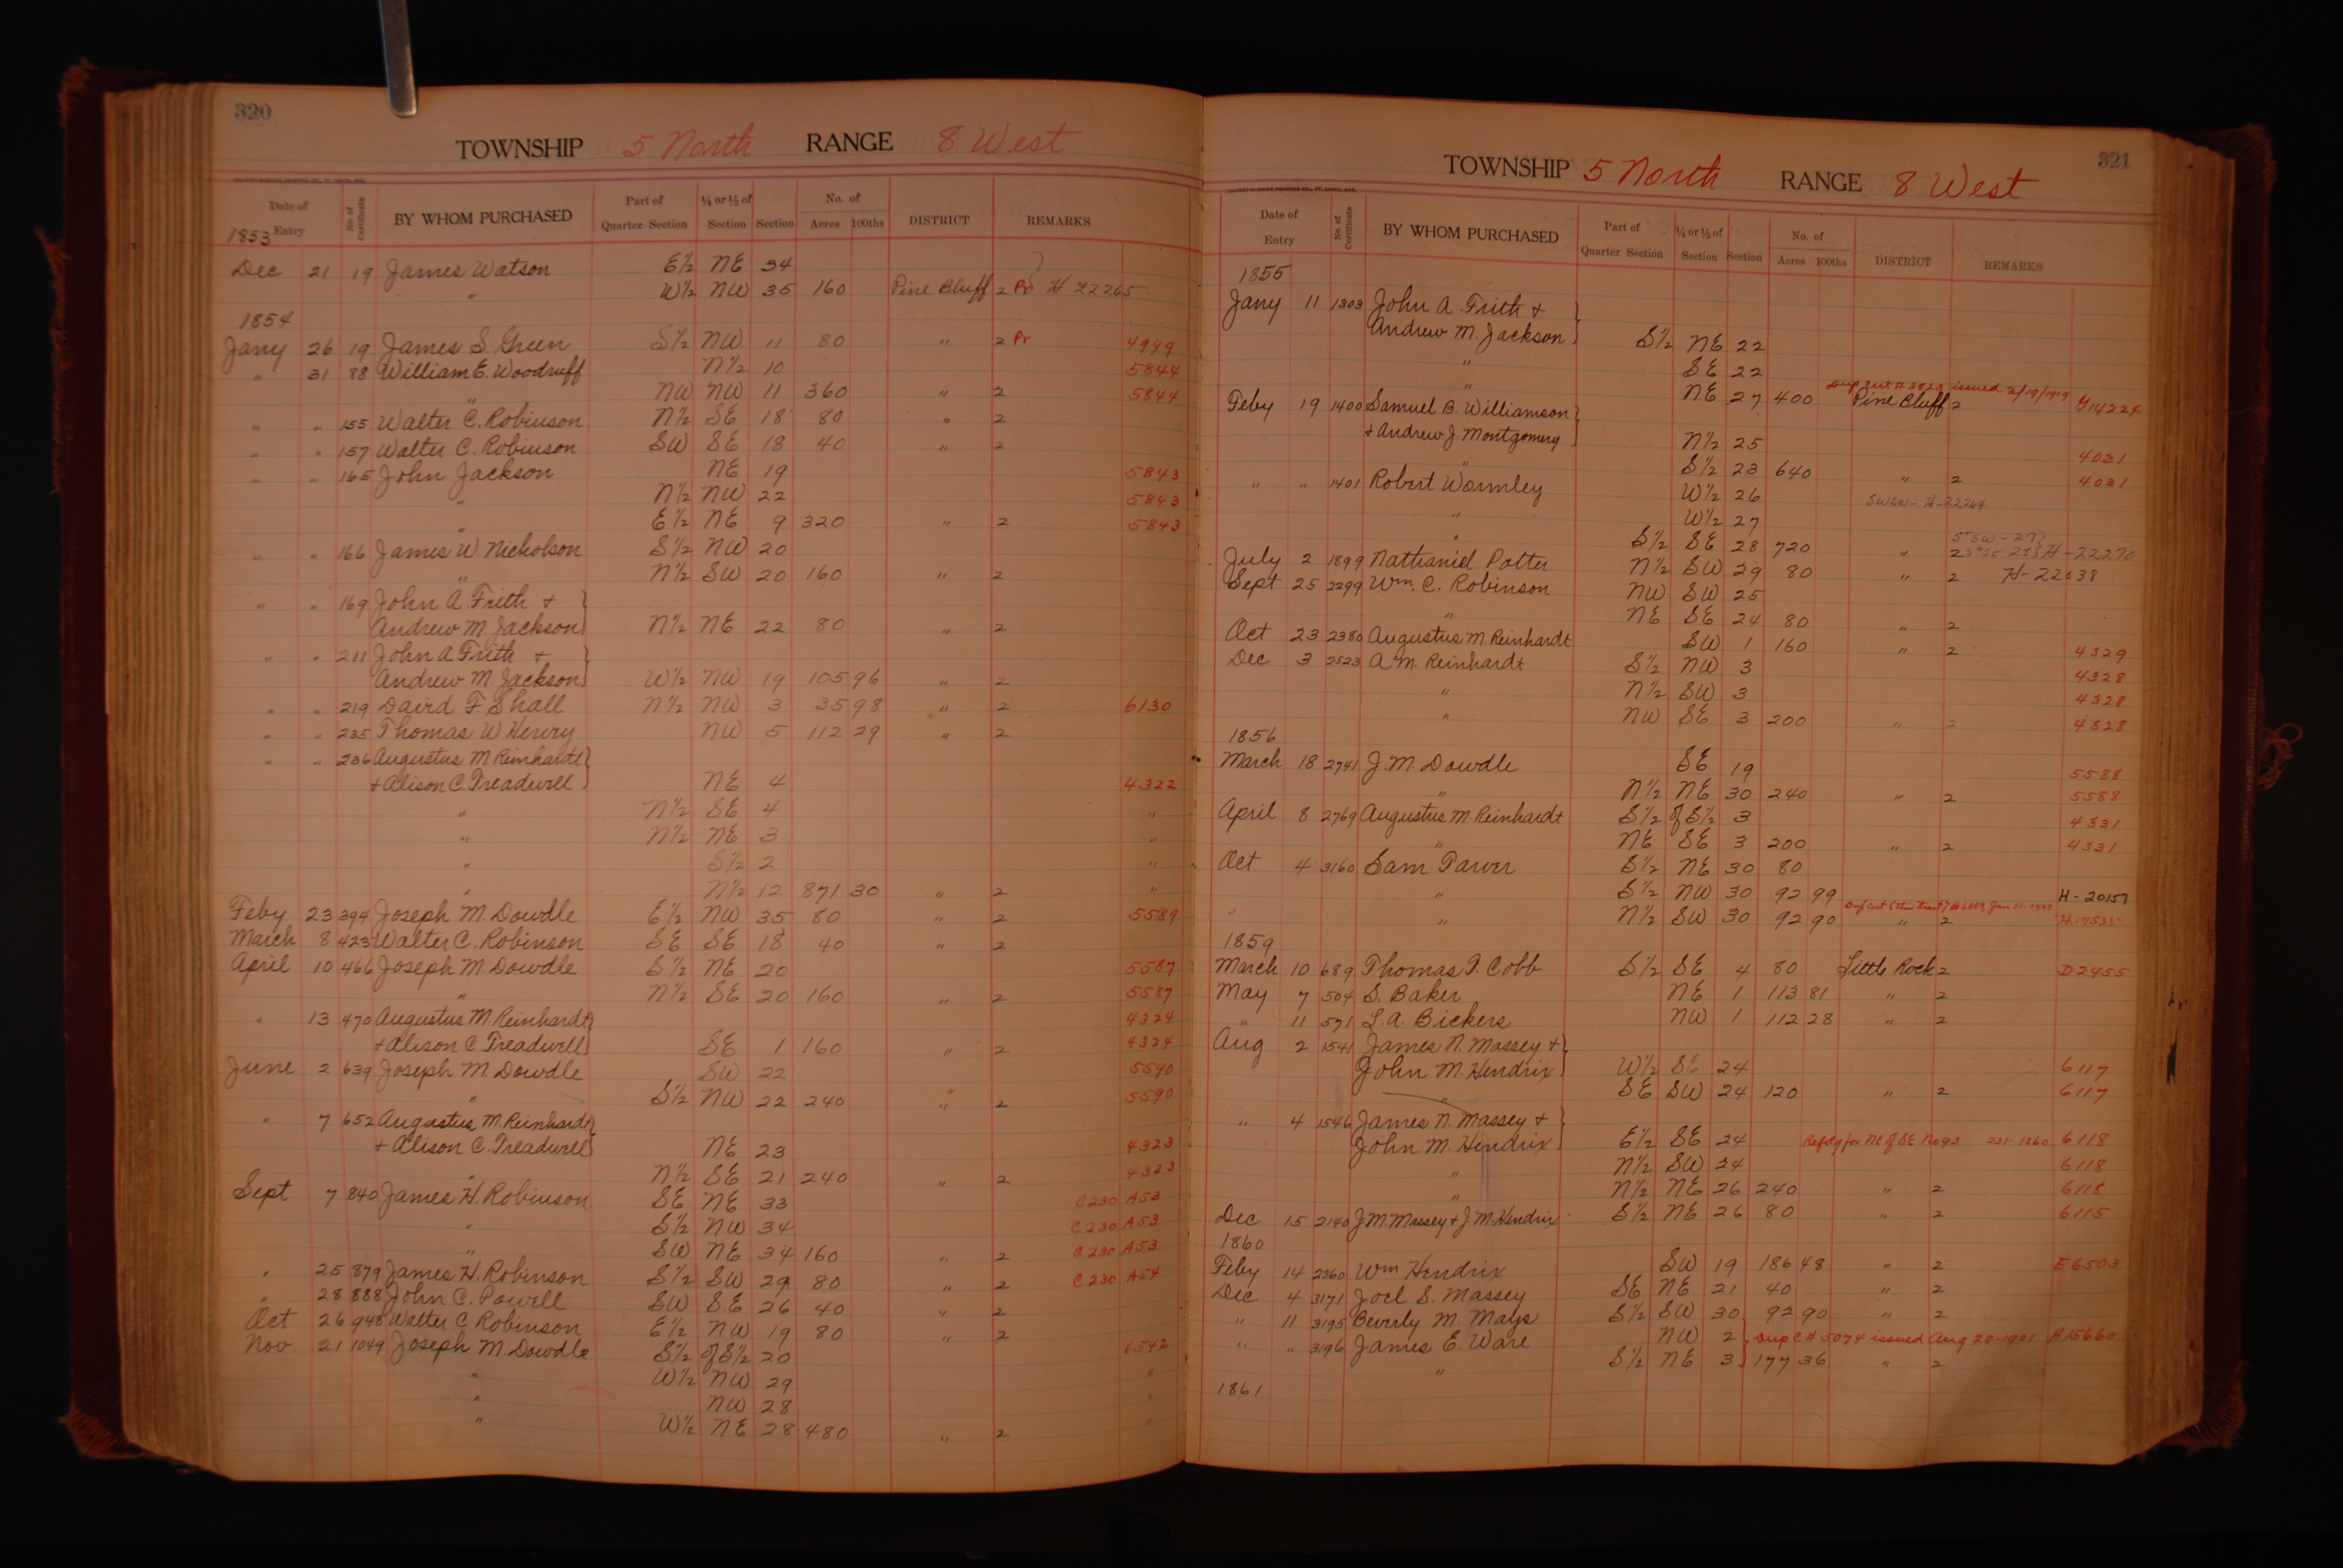 320
TOWNSHIP 5 North RANGE 8 West
Date of Entry No. of Certificate BY WHOM PURCHASED Part of Quarter Section ¼ or ½ of Section Section No. of Acres 100ths DISTRICT REMARKS
1853
Dec 21 19 James Watson E½ NE 34
" W½ NW 35 160 Pine Bluff 2 Pr H 22265
1854
Jany 26 19 James S. Green S½ NW 11 80 " 2 Pr 4999
" 31 88 William E. Woodruff N½ 10 5844
" NW NW 11 360 " 2 5844
" " 155 Walter C. Robinson N½ SE 18 80 " 2
" " 157 Walter C. Robinson SW SE 18 40 " 2
" " 165 John Jackson NE 19 5843
" N½ NW 22 5843
" E½ NE 9 320 " 2 5843
" " 166 James W. Nicholson S½ NW 20
" N½ SW 20 160 " 2
" " 169 John A Frith +
Andrew M. Jackson N½ NE 22 80 " 2
" " 211 John A Frith +
Andrew M. Jackson W½ NW 19 105 96 " 2
" " 219 David F. Shall N½ NW 3 35 98 " 2 6130
" " 235 Thomas W Henry NW 5 112 29 " 2
" " 236 Augustus M Reinhardt
+ Alison C. Treadwell NE 4 4322
" N½ SE 4 "
" N½ NE 3 "
" S½ 2 "
" N½ 12 871 30 " 2 "
Feby 23 394 Joseph M. Dowdle E½ NW 35 80 " 2 5589
March 8 423 Walter C. Robinson SE SE 18 40 " 2
April 10 466 Joseph M. Dowdle S½ NE 20 5587
" N½ SE 20 160 " 2 5587
" 13 470 Augustus M. Reinhardt 4324
+ Alison C Treadwell SE 1 160 " 2 4324
June 2 639 Joseph M. Dowdle SW 22 5590
" S½ NW 22 240 " 2 5590
" 7 652 Augustus M. Reinhardt
+ Alison C. Treadwell NE 23 4323
" N½ SE 21 240 " 2 4323
Sept 7 840 James H. Robinson SE NE 33 C230 A53
" S½ NW 34 C230 A53
" SW NE 34 160 " 2 C230 A53
" 25 879 James H. Robinson S½ SW 29 80 " 2 C230 A54
" 28 888 John C. Powell SW SE 26 40 " 2
Oct 26 948 Walter C Robinson E½ NW 19 80 " 2
Nov 21 1049 Joseph M. Dowdle S½ of S½ 20 6542
" W½ NW 29 "
" NW 28 "
" W½ NE 28 480 " 2 "
321
TOWNSHIP 5 North RANGE 8 West
Date of Entry No. of Certificate BY WHOM PURCHASED Part of Quarter Section ¼ or ½ of Section Section No. of Acres 100ths DISTRICT REMARKS
1855
Jany 11 1303 John A. Frith +
Andrew M. Jackson S½ NE 22
" SE 22
Dup Cert # 3823 issued 2/19/1919
" NE 27 400 Pine Bluff 2 G14224
Feby 19 1400 Samuel B. Williamson
+ Andrew J. Montgomery N½ 25 4031
" S½ 23 640 " 2 4031
" " 1401 Robert Wormley W½ 26 SWSW - H-22264
" W½ 27
" S½ SE 28 720 " 2 H-22270
July 2 1899 Nathaniel Potter N½ SW 29 80 " 2 H-22038
Sept 25 2299 Wm. C. Robinson NW SW 25
" NE SE 24 80 " 2
Oct 23 2380 Augustus M. Reinhardt SW 1 160 " 2 4329
Dec 3 2523 A. M. Reinhardt S½ NW 3 4328
" N½ SW 3 4328
" NW SE 3 200 " 2 4328
1856
March 18 2741 J. M. Dowdle SE 19 5588
" N½ NE 30 240 " 2 5588
April 8 2769 Augustus M. Reinhardt S½ of S½ 3 4331
" NE SE 3 200 " 2 4331
Oct 4 3160 Sam Tarver S½ NE 30 80
" S½ NW 30 92 99 H-20157
" " N½ SW 30 92 90 " 2 H.19535
1859
March 10 689 Thomas P. Cobb S½ SE 4 80 Little Rock 2 D2455
May 7 504 S. Baker NE 1 113 81 " 2
" 11 571 L. A. Bickers NW 1 112 28 " 2
Aug 2 1541 James N. Massey +
John M. Hendrix W½ SE 24 6117
" SE SW 24 120 " 2 6117
" 4 1546 James N. Massey +
John M. Hendrix E½ SE 24 Refdg for NE of SE No93 231-1860 6118
" N½ SW 24 6118
" N½ NE 26 240 " 2 6118
Dec 15 2140 J. M. Massey + J. M. Hendrix S½ NE 26 80 " 2 6115
1860
Feby 14 2360 Wm Hendrix SW 19 186 48 " 2 E6503
Dec 4 3171 Joel S. Massey SE NE 21 40 " 2
" 11 3195 Beverly M. Mays S½ SW 30 92 90 " 2
" " 3196 James E. Ware NW 2 Dup C # 5074 issued Aug 20-1921 H15660
" S½ NE 3 177 36 " 2
1861